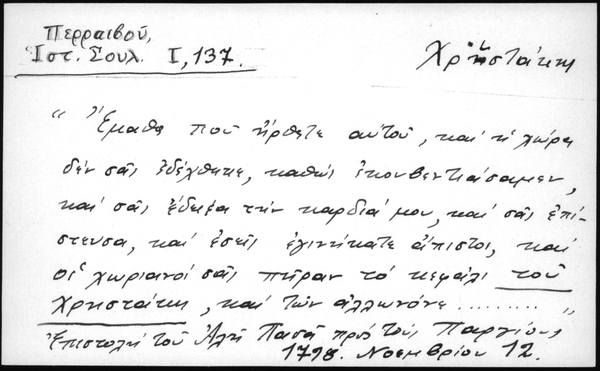 Περραιβού,
Ἱστ. Σουλ. I, 137.
Χρηστάκη
“ Ἔμαθα ποῦ ἤρθετε αὐτοῦ, καί ἡ χώρα
δέν σᾶς ἐδέχθηκε, καθώς ἐκουβεντιάσαμεν,
καί σᾶς ἔδειξα τήν καρδιά μου, καί σᾶς ἐπί-
στευσα, καί ἐσεῖς ἐγινήκατε ἄπιστοι, καί
οἱ χωριανοί σας πῆραν τό κεφάλι τοῦ
Χρηστάκη, καί τῶν ἀλλωνῶνε ......... „
Ἐπιστολή τοῦ Ἀλῆ Πασᾶ πρός τούς Παργίους
1798. Νοεμβρίου 12.